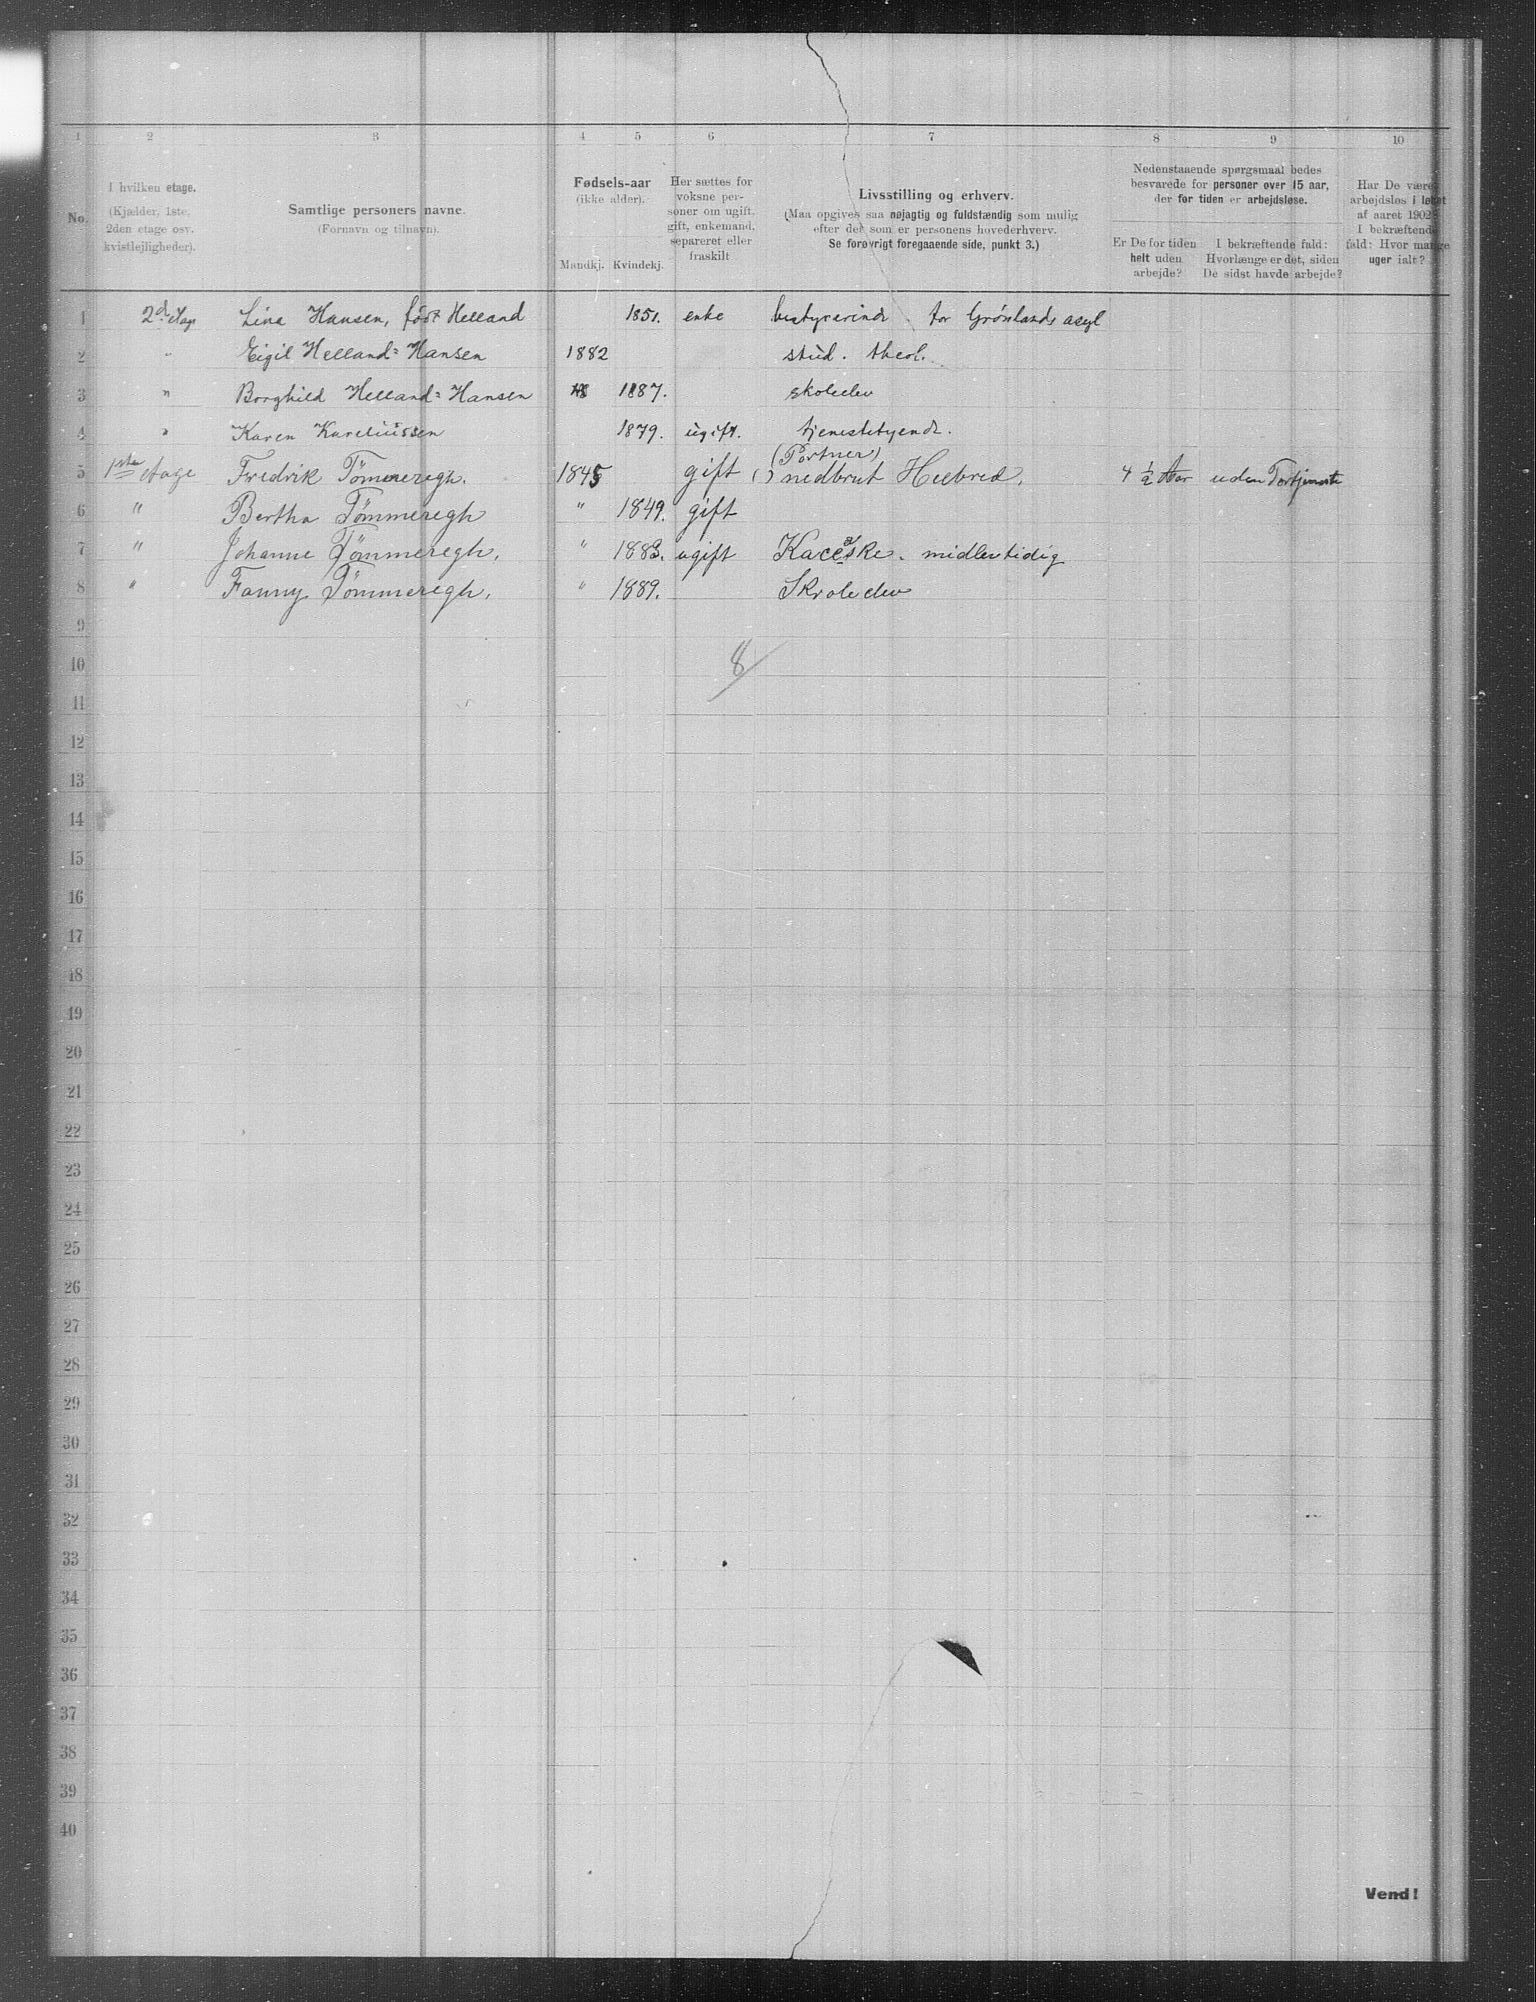 1 2 3 4 5 6 7 8 9 10
No.
I hvilken etage.
(Kjælder, 1ste,
2den etage osv.
kvistlejligheder).
Samtlige personers navne.
(Fornavn og tilnavn).
Fødsels-aar
(ikke alder).
Mandkj. Kvindekj.
Her sættes for
voksne per-
soner om ugift,
gift, enkemand,
separeret eller
fraskilt
Livsstilling og erhverv.
(Maa opgives saa nøjagtig og fuldstændig som mulig
efter det som er personens hovederhverv.
Se forøvrigt foregaaende side, punkt 3.)
Nedenstaaende spørgsmaal bedes
besvarede for personer over 15 aar,
der for tiden er arbejdsløse.
Er De for tiden
helt uden
arbejde?
I bekræftende fald:
Hvorlænge er det, siden
De sidst havde arbejde?
Har De være
arbejdsløs i løbet
af aaret 1902?
I bekræftende
fald: Hvor mange
uger ialt?
1 2d etage Lina Hansen, født Helland 1851. enke bestyrerinde for Grønlands asyl
2 " Eigil Helland=Hansen 1882 stud. theol.
3 " Borghild Helland=Hansen 1887. skoleelev
4 " Karen Kareliussen 1879. ugift. tjenestetyende.
(Portner)
5 1ste Etage Fredrik Tömmeregh. 1845 gift () nedbrut 4 ½ Aar uden Fortjeneste
6 " Bertha Tömmeregh " 1849. gift
7 " Johanne Tömmeregh, " 1883. ugift midlertidig
8 " Fanny Tömmeregh, " 1889. Skoleelev
9
10
8
11
12
13
14
15
16
17
18
19
20
21
22
23
24
25
26
27
28
29
30
31
32
33
34
35
36
37
38
39
40
Vend!